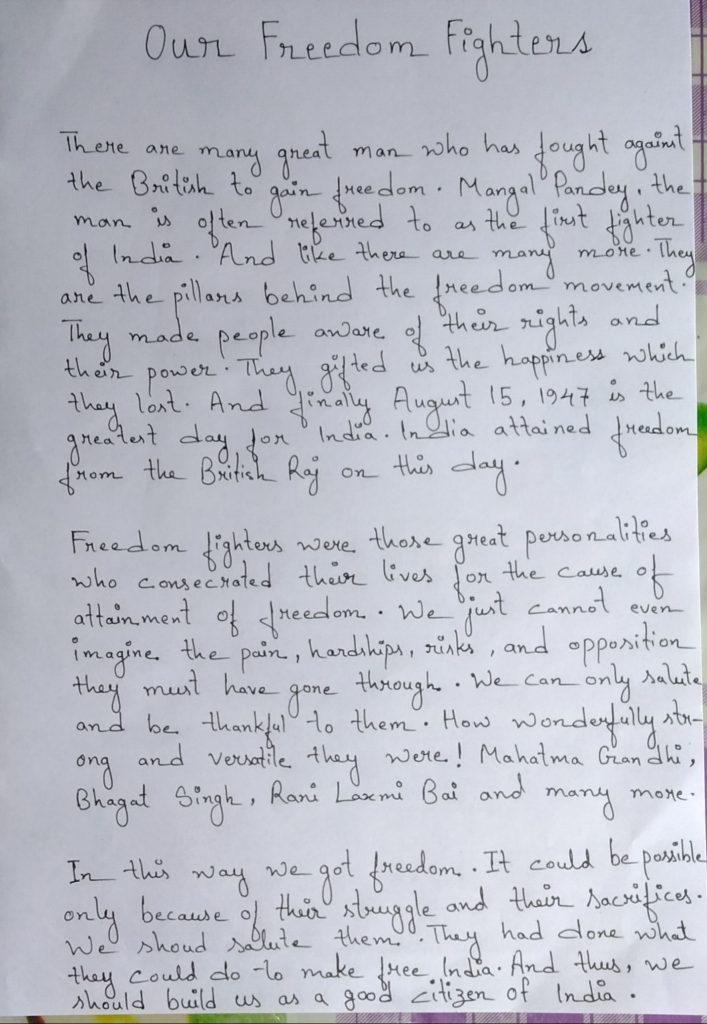 Our Freedom Fighters
There are many great man who has fought against
the British to gain freedom. Mangal Pandey, the
man is often referred to as the first fighter
of India. And like there are many more. They
are the pillars behind the freedom movement.
They made people aware of their rights and
their power. They gifted us the happiness which
they lost. And finally August 15, 1947 is the
greatest day for India. India attained freedom
from the British Raj on this day.
Freedom fighters were those great personalities
who consecrated their lives for the cause of
attainment of freedom. We just cannot even
imagine the pain, hardships, risks, and opposition
they must have gone through. We can only salute
and be thankful to them. How wonderfully str-
ong and versatile they were! Mahatma Gandhi,
Bhagat Singh, Rani Laxmi Bai and many more.
In this way we got freedom. It could be possible
only because of their struggle and their sacrifices.
We shoud salute them. They had done what
they could do to make free India. And thus, we
should build us as a good citizen of India.